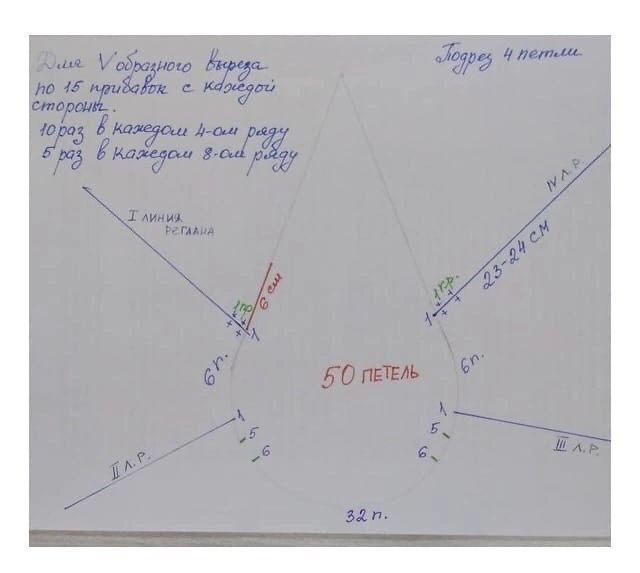 Для V образного выреза
по 15 прибавок с каждой
стороны.
10 раз в каждом 4-ом ряду
5 раз в каждом 8-ом ряду
Подрез 4 петли
I линия
реглана
IV л.р.
23-24 см
1 пр.
6 см
1 пр.
1
1
6 п.
50 петель
6 п.
1
1
5
5
6
6
II л.р.
III л.р.
32 п.